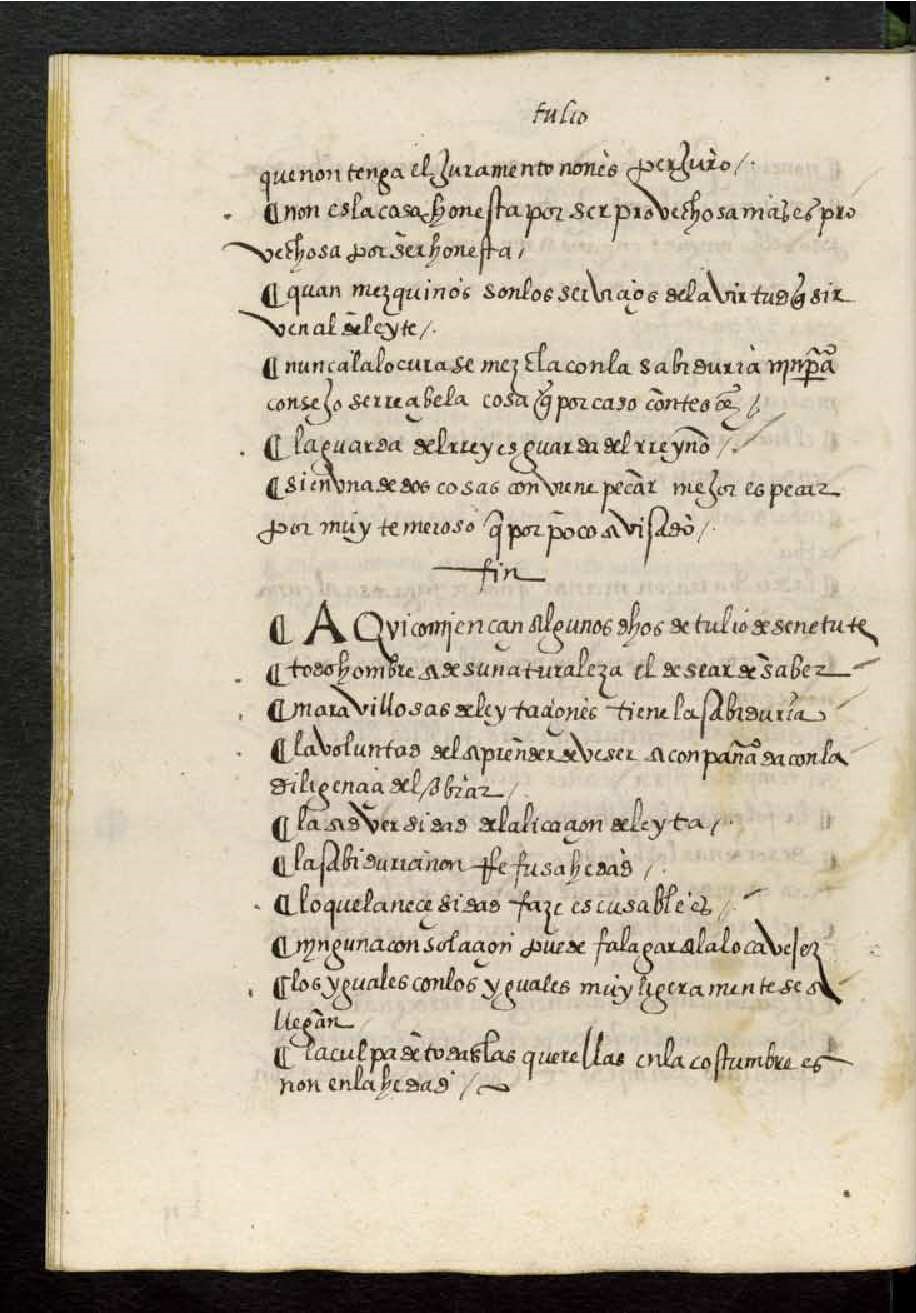 tulio
que non tenga el Juramento non es perJuro /.
¶ non es la cosa honesta por ser provechosa mas es pro
vechosa por ser honesta /
¶ quan mezquinos son los serviçios de la virtud q̃ sir
ven al deleyte /.
¶ nunca la locura se mezcla con la sabiduria
conseJo se rreabela cosa q̃ por caso contesçe /
¶ la guarda del rrey es guarda del rreyno /.
¶ si en una de dos cosas conviene pecar meJor es pecar
por muy temeroso q̃ por poco avisado /.
fin
¶ AQvi comjençan algunos dhos de tulio de senetute
¶ todo hombre a de su naturaleza el desear de saber
¶ maravillosas deleytaçiones tiene la sabiduria
¶ la voluntad del aprender deve ser aconpañada con la
diligençia del obrar /
¶ la adversidad
¶ la sabiduria non rrefusa hedad /.
¶ lo que la neçesidad faze escusable es /.
¶ njnguna consolaçion puede falagar a la loca vejez
¶ los yguales con los yguales muy ligeramente se a
llegan /
¶ la culpa de todas las querellas en la costumbre es
non en la hedad /